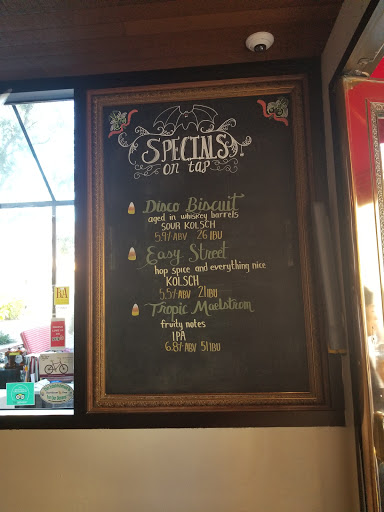 SPECIALS
on tap
Disco Biscuit
aged in whiskey barrels
SOUR KOLSCH
5.9% ABV 26 IBU
Easy Street
hop spice and everything nice
KOLSCH
5.5% ABV 21 IBU
Tropic Maelstrom
fruity notes
IPA
6.8% ABV 51 IBU